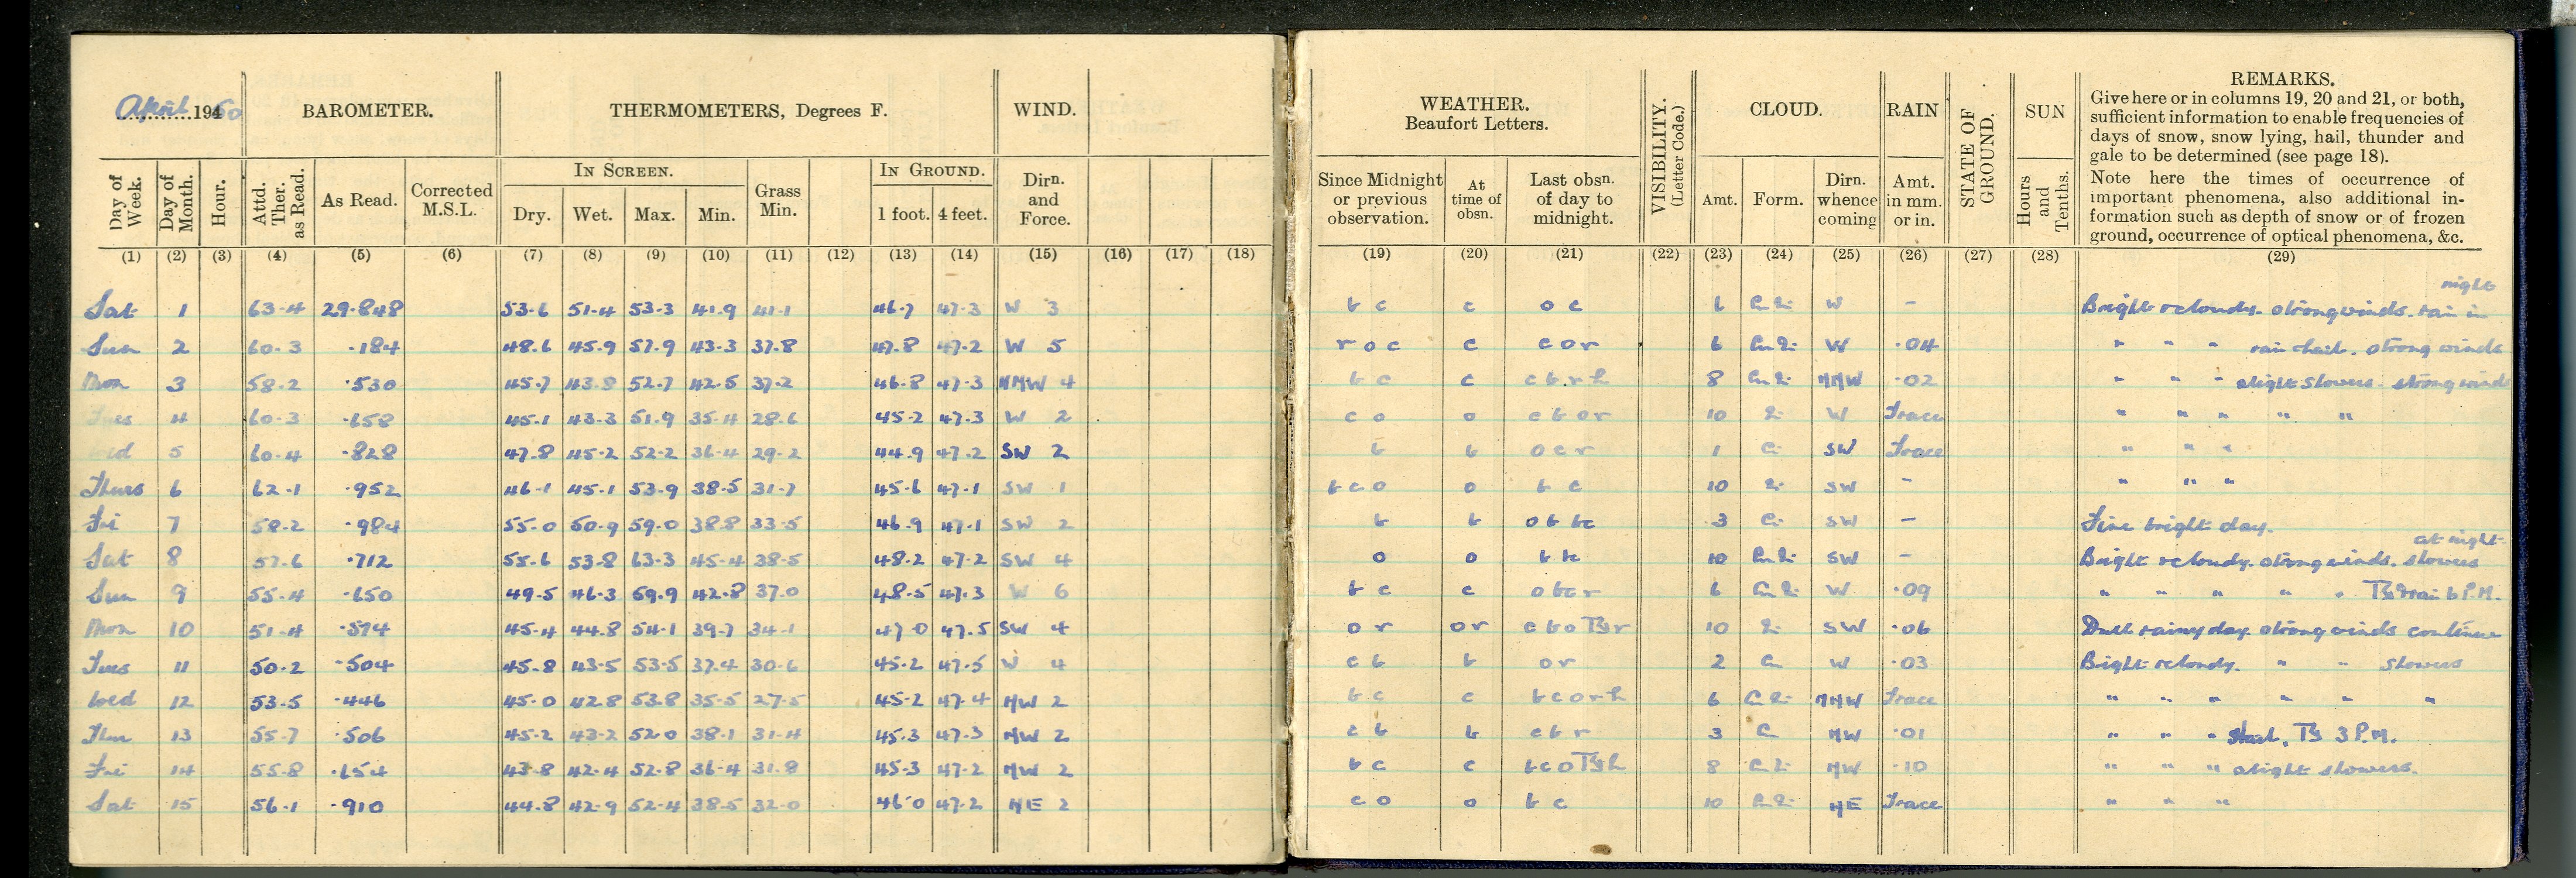 April 1950
BAROMETER.
THERMOMETERS, Degrees F.
WIND.
Day of Week.
Day of Month.
Hour.
Attd. Ther. as Read.
As Read.
Corrected M.S.L.
IN SCREEN.
Dry. Wet. Max. Min.
Grass Min.
IN GROUND.
1 foot. 4 feet.
Dirn. and Force.
(1) (2) (3) (4) (5) (6) (7) (8) (9) (10) (11) (12) (13) (14) (15) (16) (17) (18)
Sat 1 63.4 29.848 53.6 51.4 53.3 41.9 41.1 46.7 47.3 W 3
Sun 2 60.3 .184 48.6 45.9 57.9 43.3 37.8 47.8 47.2 W 5
Mon 3 58.2 .530 45.7 43.8 52.7 42.5 37.2 46.8 47.3 NNW 4
Tues 4 60.3 .658 45.1 43.3 51.9 35.4 28.6 45.2 47.3 W 2
Wed 5 60.4 .828 47.8 45.2 52.2 36.4 29.2 44.9 47.2 SW 2
Thurs 6 62.1 .952 46.1 45.1 53.9 38.5 31.7 45.6 47.1 SW 1
Fri 7 58.2 .984 55.0 50.9 59.0 38.8 33.5 46.9 47.1 SW 2
Sat 8 57.6 .712 55.6 53.8 63.3 45.4 38.5 48.2 47.2 SW 4
Sun 9 55.4 .650 49.5 46.3 59.9 42.8 37.0 48.5 47.3 W 6
Mon 10 51.4 .574 45.4 44.8 54.1 39.7 34.1 47.0 47.5 SW 4
Tues 11 50.2 .504 45.8 43.5 53.5 37.4 30.6 45.2 47.5 W 4
Wed 12 53.5 .446 45.0 42.8 53.8 35.5 27.5 45.2 47.4 NW 2
Thur 13 55.7 .506 45.2 43.2 52.0 38.1 31.4 45.3 47.3 NW 2
Fri 14 55.8 .654 43.8 42.4 52.8 36.4 31.8 45.3 47.2 NW 2
Sat 15 56.1 .910 44.8 42.9 52.4 38.5 32.0 46.0 47.2 NE 2
WEATHER.
Beaufort Letters.
Since Midnight or previous observation.
At time of obsn.
Last obsn. of day to midnight.
VISIBILITY. (Letter Code.)
CLOUD.
Amt. Form. Dirn. whence coming
RAIN
Amt. in mm. or in.
STATE OF GROUND.
SUN
Hours and Tenths.
REMARKS.
Give here or in columns 19, 20 and 21, or both,
sufficient information to enable frequencies of
days of snow, snow lying, hail, thunder and
gale to be determined (see page 18).
Note here the times of occurrence of
important phenomena, also additional in-
formation such as depth of snow or of frozen
ground, occurrence of optical phenomena, &c.
(19) (20) (21) (22) (23) (24) (25) (26) (27) (28) (29)
b c c o c 6 W - Bright & cloudy. strong winds. rain in night
r o c c c o r 6 W .04 " " " rain & hail. strong winds
b c c c b r h 8 NNW .02 " " " slight showers - strong winds
c o o c b o r 10 W Trace " " " " "
b b o c r 1 SW Trace " " "
b c o o b c 10 SW - " " "
b b o b bc 3 SW - Fine bright day.
o o 10 SW - Bright & cloudy. strong winds. showers at night
b c c o b c r 6 W .09 " " " " " & rain 6 P.M.
o r o r 10 SW .06 Dull rainy day. strong winds continue
c b b o r 2 W .03 Bright & cloudy. " " showers
b c c b c o r h 6 NNW Trace " " " " " "
c b b c b r 3 NW .01 " " " 3 P.M.
b c c 8 NW .10 " " " slight showers.
c o o b c 10 NE Trace " " "